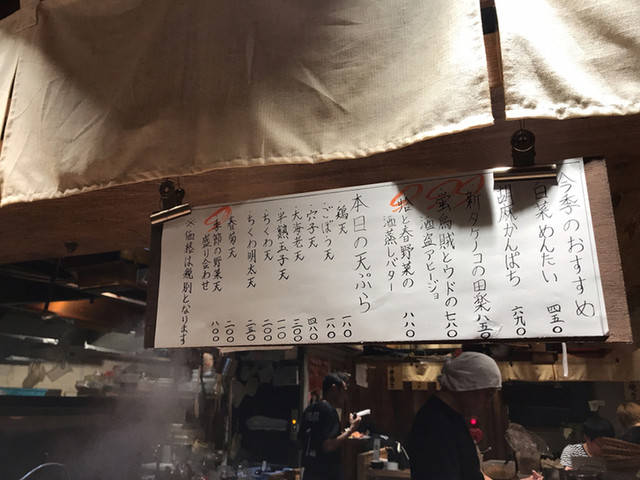 今季のおすすめ
白菜めんたい 四五〇
胡麻かんぱち 六九〇
新タケノコの田楽 八五〇
蛍烏賊とウドの酒盗アヒージョ 七八〇
蛤と春野菜の酒蒸しバター 八八〇
本日の天ぷら
・鶏天 一八〇
・ごぼう天 一八〇
・穴子天 四八〇
・大海老天 三八〇
・半熟玉子天 一八〇
・ちくわ天 一〇〇
・ちくわ明太天 二三〇
春菊天 二〇〇
季節の野菜天盛り合わせ 八〇〇
※価格は税別となります